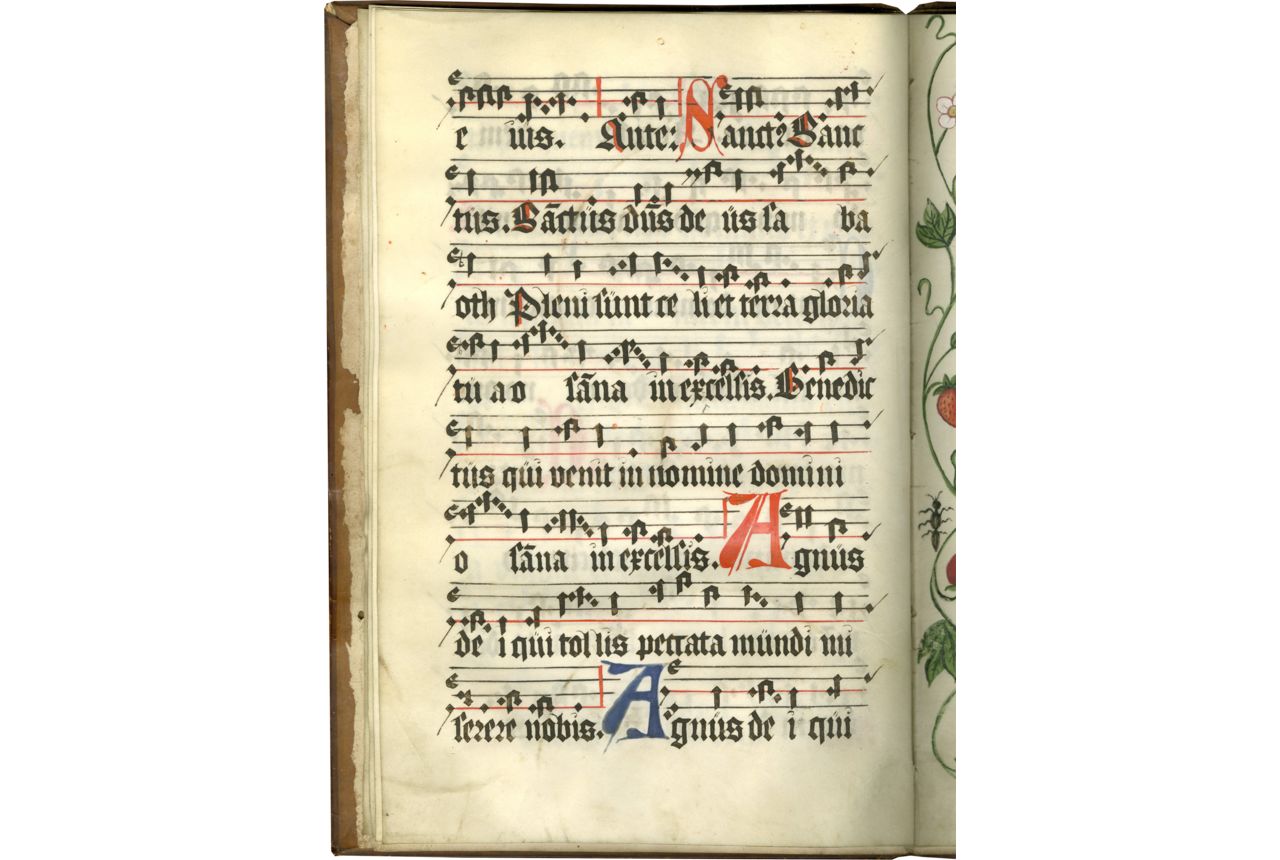 e üis. Ante: Sanct9 Sanc
tüs. Sãctüs dn̄s de üs sa ba
oth Pleni sünt ce li et terra gloria
tü a o sãna in excelsis. Benedic
tüs qüi venit in nomine domini
o sãna in excelsis. Agnüs
de i qüi tollis peccata mündi mi
serere nobis. Agnüs de i qüi